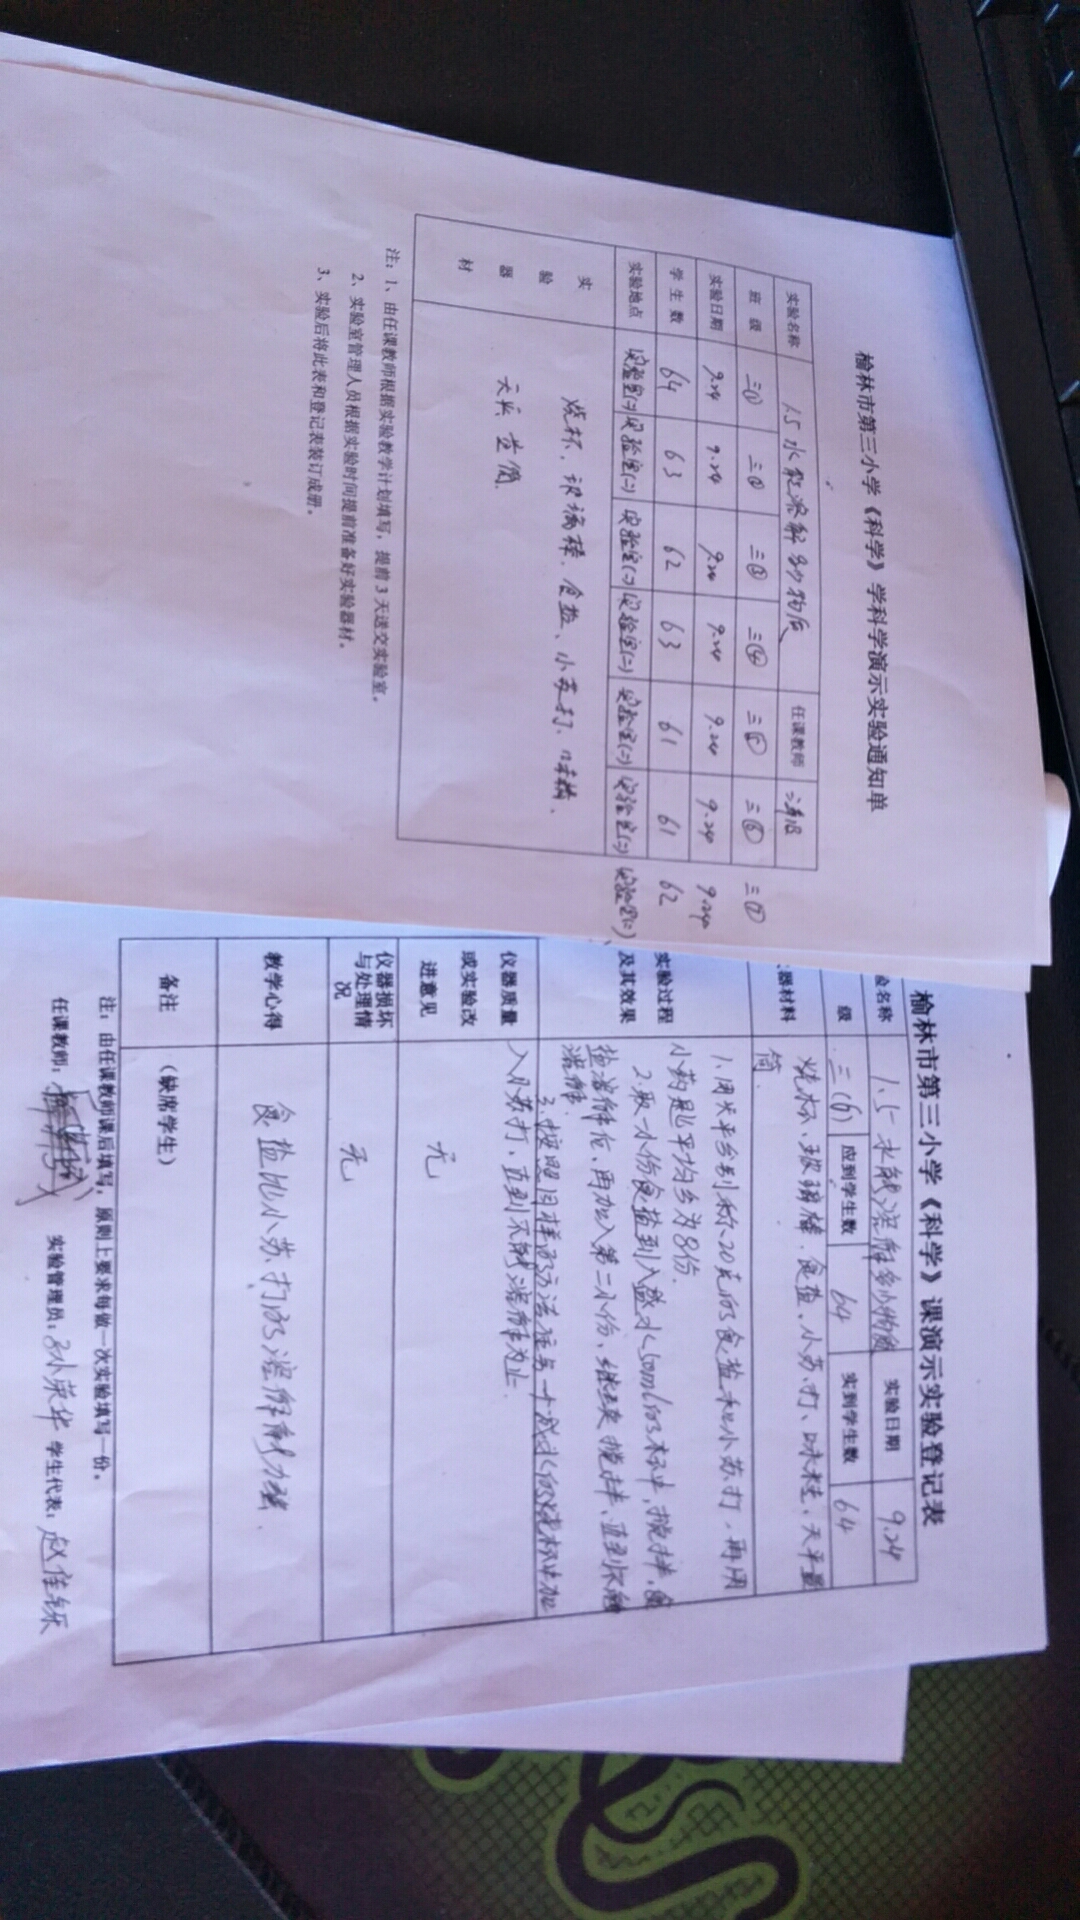 榆林市第三小学《科学》学科学演示实验通知单
实验名称 1.5 水能溶解多少物质 任课教师
班 级 三① 三② 三③ 三④ 三⑤ 三⑥ 三⑦
实验日期 9.24 9.24 9.24 9.24 9.24 9.24 9.24
学 生 数 64 63 62 63 61 61 62
实验地点 实验室(二) 实验室(二) 实验室(二) 实验室(二) 实验室(二) 实验室(二) 实验室(二)
实验器材
烧杯、玻璃棒、食盐、小苏打、
天平 量筒.
注：1、由任课教师根据实验教学计划填写，提前3天送交实验室。
2、实验室管理人员根据实验时间提前准备好实验器材。
3、实验后将此表和登记表装订成册。
榆林市第三小学《科学》课演示实验登记表
验名称 1.5 水能溶解多少物质 实验日期 9.24
级 三(6) 应到学生数 64 实到学生数 64
器材料 烧杯、玻璃棒.食盐、小苏打、天平量
筒.
实验过程
及其效果
1.用天平分别称20克的食盐和小苏打，再用
小药匙平均分为8份.
2.取一小份食盐到入盛水50ml的杯中,搅拌,食
盐溶解后,再加入第二小份,继续搅拌、直到不能
溶解.
3.按照同样的方法在另一个盛水的烧杯中加
入小苏打,直到不能溶解为止.
仪器质量
或实验改
进意见
无
仪器损坏
与处理情
况
无
教学心得 食盐比小苏打的溶解能力强.
备注 （缺席学生）
注：由任课教师课后填写，原则上要求每做一次实验填写一份。
任课教师： 实验管理员： 荣华 学生代表： 赵佳乐